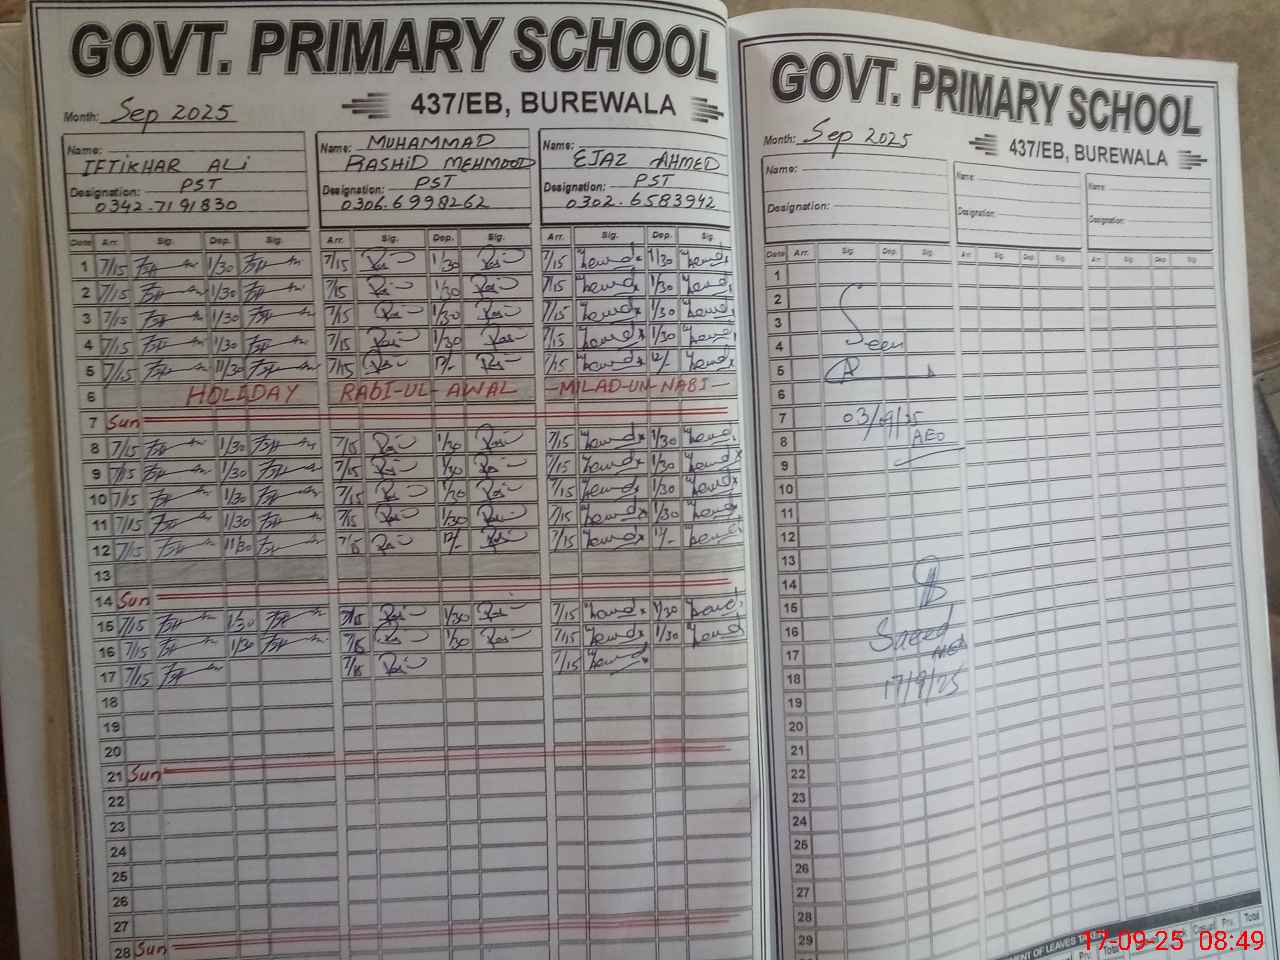 GOVT. PRIMARY SCHOOL
437/EB, BUREWALA
Month: Sep 2025
Name: IFTIKHAR ALI
Designation: PST
0342.7191830
Name: MUHAMMAD RASHID MEHMOOD
Designation: PST
0306.6998262
Name: EJAZ AHMED
Designation: PST
0302.6583942
Date Arr. Sig. Dep. Sig. Arr. Sig. Dep. Sig. Arr. Sig. Dep. Sig.
1 7/15 1/30 7/15 1/30 7/15 1/30
2 7/15 1/30 7/15 1/30 7/15 1/30
3 7/15 1/30 7/15 1/30 7/15 1/30
4 7/15 1/30 7/15 1/30 7/15 1/30
5 7/15 11/30 7/15 12/- 7/15 12/-
6 HOLIDAY RABI-UL-AWAL -MILAD-UN-NABI-
7 Sun
8 7/15 1/30 7/15 1/30 7/15 1/30
9 7/15 1/30 7/15 1/30 7/15 1/30
10 7/15 1/30 7/15 1/30 7/15 1/30
11 7/15 1/30 7/15 1/30 7/15 1/30
12 7/15 11/30 7/15 12/- 7/15
13
14 Sun
15 7/15 1/30 7/15 1/30 7/15 1/30
16 7/15 1/30 7/15 1/30 7/15 1/30
17 7/15 7/15 7/15
18
19
20
21 Sun
22
23
24
25
26
27
28 Sun
GOVT. PRIMARY SCHOOL
437/EB, BUREWALA
Month: Sep 2025
Name:
Designation:
Name:
Designation:
Name:
Designation:
Date Arr. Sig. Dep. Sig. Arr. Sig. Dep. Sig. Arr. Sig. Dep. Sig.
1
2
3
4 Seen
5
6
7 03/09/25
8 AEO
9
10
11
12
13
14
15
16 Saeed
17
18 17/9/25
19
20
21
22
23
24
25
26
27
28
29
17-09-25 08:49